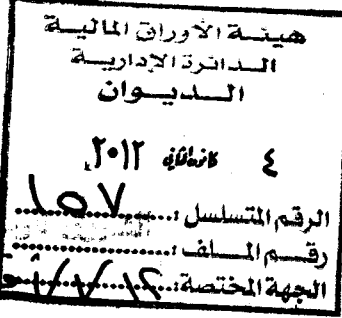 هيئة الأوراق المالية
الدائرة الإدارية
الديوان
٤ كانون الثاني ٢٠١٢
الرقم المتسلسل : ١٥٧
رقم الملف :
الجهة المختصة :